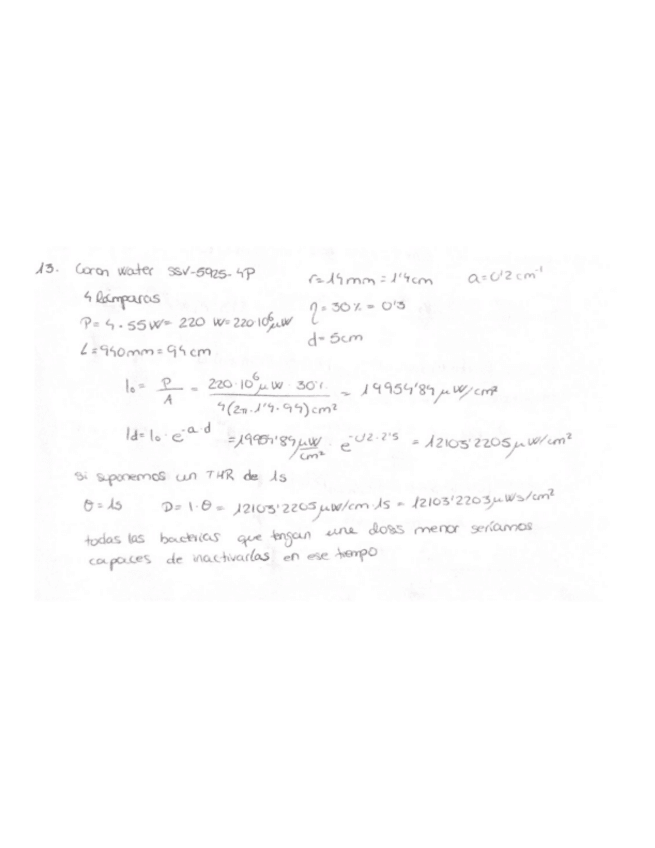 13. Coron water SSV-5925-4P r=14mm=1'4cm a=0'2cm⁻¹
4 lámparas η=30%=0'3
P=4·55W=220 W=220·10⁶μW
d=5cm
L=940mm=94cm
I₀= P/A = 220·10⁶μW·30% / 4(2π·1'4·94)cm² = 19954'84μW/cm²
Id=I₀·e^-a·d =19954'84μW/cm² e^-0'2·2'5 = 12103'2205μW/cm²
si suponemos un THR de 1s
θ=1s D=I·θ= 12103'2205μW/cm·1s = 12103'2203μWs/cm²
todas las bacterias que tengan una dosis menor seríamos
capaces de inactivarlas en ese tiempo